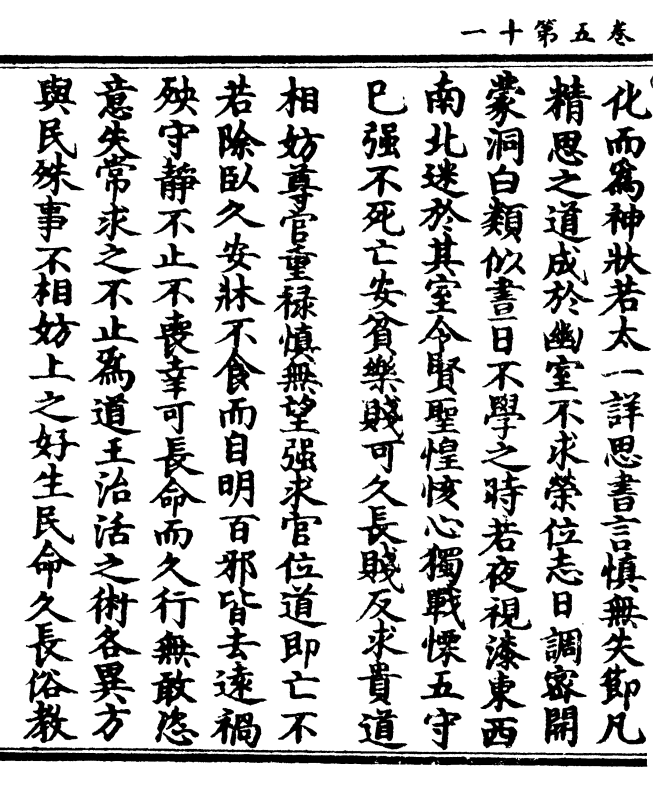 卷五第十一
化而爲神狀若太一詳思書言慎無失節凡
精思之道成於幽室不求榮位志日調密開
蒙洞白類似晝日不學之時若夜視漆東西
南北迷於其室令賢聖惶恢心獨戰慄五守
已强不死亡安貧樂賤可久長賤反求貴道
相妨尊官重禄慎無望强求官位道即亡不
若除臥久安牀不食而自明百邪皆去遠禍
殃守靜不止不喪幸可長命而久行無敢恣
意失常求之不止爲道王治活之術各異方
與民殊事不相妨上之好生民命久長俗教